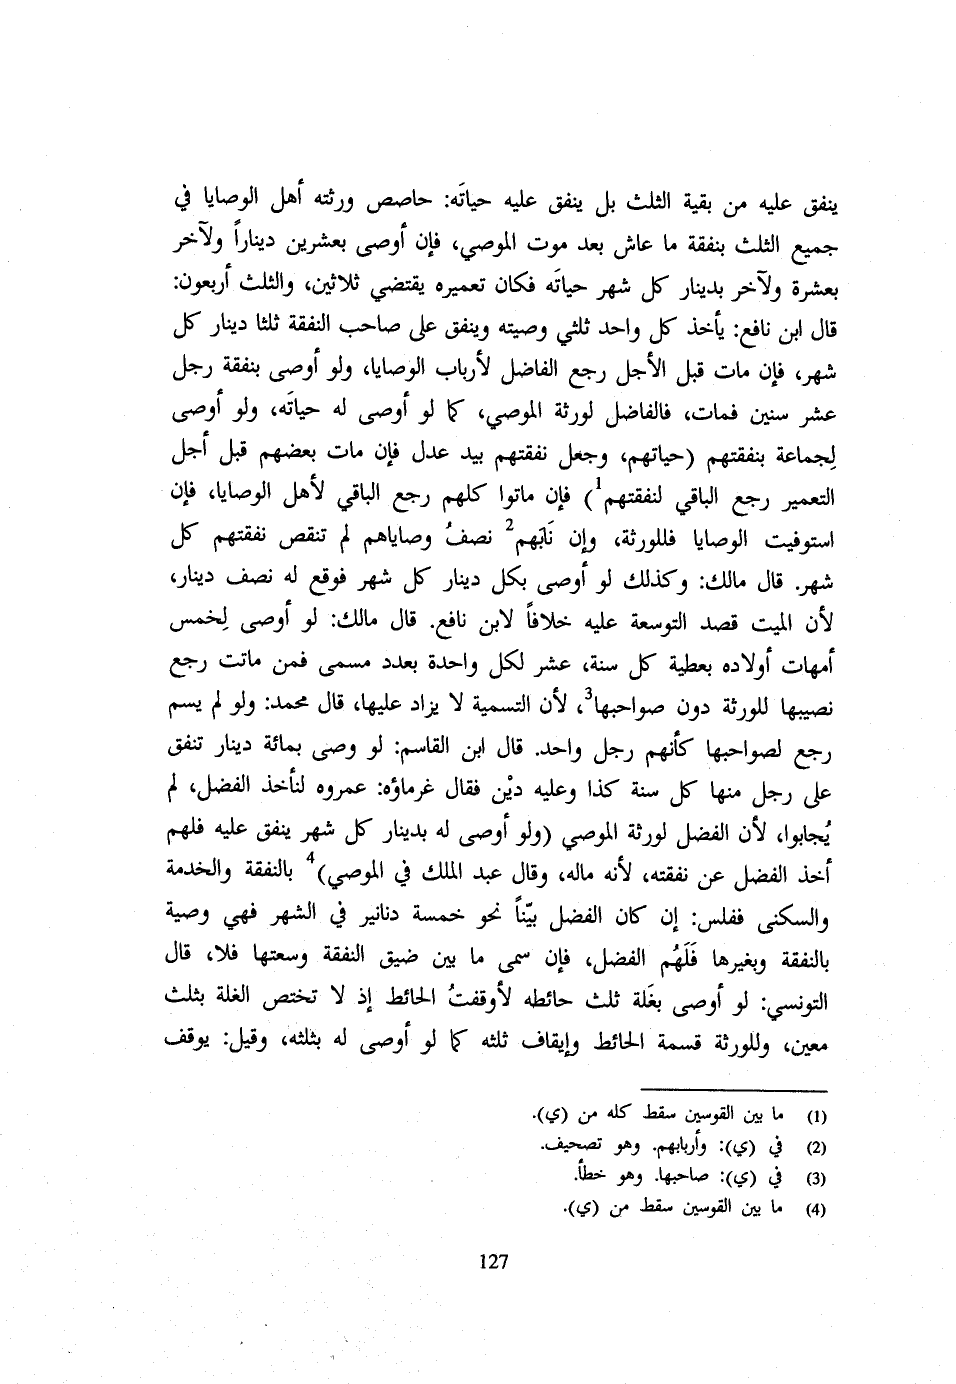 ينفق عليه من بقية الثلث بل ينفق عليه حياتَه: حاصص ورثته أهل الوصايا في
جميع الثلث بنفقة ما عاش بعد موت الموصي، فإن أوصى بعشرين ديناراً ولآخر
بعشرة ولآخر بدينار كل شهر حياتَه فكان تعميره يقتضي ثلاثين، والثلث أربعون:
قال ابن نافع: يأخذ كل واحد ثلثي وصيته وينفق على صاحب النفقة ثلثا دينار كل
شهر، فإن مات قبل الأجل رجع الفاضل لأرباب الوصايا، ولو أوصى بنفقة رجل
عشر سنين فمات، فالفاضل لورثة الموصي، كما لو أوصى له حياتَه، ولو أوصى
لِجماعة بنفقتهم (حياتهم، وجعل نفقتهم بيد عدل فإن مات بعضهم قبل أجل
التعمير رجع الباقي لنفقتهم1) فإن ماتوا كلهم رجع الباقي لأهل الوصايا، فإن
استوفيت الوصايا فللورثة، وإن نَابَهم2 نصفُ وصاياهم لم تنقص نفقتهم كل
شهر. قال مالك: وكذلك لو أوصى بكل دينار كل شهر فوقع له نصف دينار،
لأن الميت قصد التوسعة عليه خلافاً لابن نافع. قال مالك: لو أوصى لِخمس
أمهات أولاده بعطية كل سنة، عشر لكل واحدة بعدد مسمى فمن ماتت رجع
نصيبها للورثة دون صواحبها3، لأن التسمية لا يزاد عليها، قال محمد: ولو لم يسم
رجع لصواحبها كأنهم رجل واحد. قال ابن القاسم: لو وصى بمائة دينار تنفق
على رجل منها كل سنة كذا وعليه ديْن فقال غرماؤه: عمروه لنأخذ الفضل، لم
يُجابوا، لأن الفضل لورثة الموصي (ولو أوصى له بدينار كل شهر ينفق عليه فلهم
أخذ الفضل عن نفقته، لأنه ماله، وقال عبد الملك في الموصي)4 بالنفقة والخدمة
والسكنى ففلس: إن كان الفضل بيّناً نحو خمسة دنانير في الشهر فهي وصية
بالنفقة وبغيرها فَلَهُم الفضل، فإن سمى ما بين ضيق النفقة وسعتها فلا، قال
التونسي: لو أوصى بغَلة ثلث حائطه لأوقفتُ الحائط إذ لا تختص الغلة بثلث
معين، وللورثة قسمة الحائط وإيقاف ثلثه كما لو أوصى له بثلثه، وقيل: يوقف
(1) ما بين القوسين سقط كله من (ي).
(2) في (ي): وأربابهم. وهو تصحيف.
(3) في (ي): صاحبها. وهو خطأ.
(4) ما بين القوسين سقط من (ي).
127